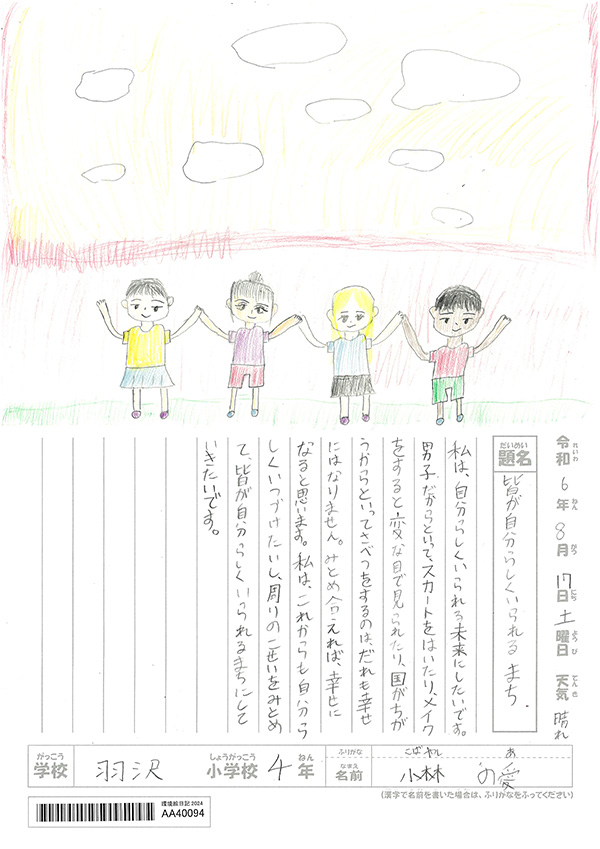 令和6年8月17日土曜日 天気 晴れ
れいわ ねん がつ にち ようび てんき
だいめい
題名 皆が自分らしくいられるまち.
私は、自分らしくいられる未来にしたいです。
男子だからといって、スカートをはいたり、メイク
をすると変な目で見られたり、国がちが
うからといってさべつをするのは、だれも幸せ
にはなりません。みとめ合えれば、幸せに
なると思います。私は、これからも自分ら
しくいつづけたいし、周りのこせいをみとめ
て、皆が自分らしくいられるまちにして
いきたいです。
がっこう しょうがっこう ねん ふりがな こばやし あ
学校 羽沢 小学校 4年 なまえ 名前 小林 の愛
(漢字で名前を書いた場合は、ふりがなをふってください)
環境絵日記 2024
AA40094